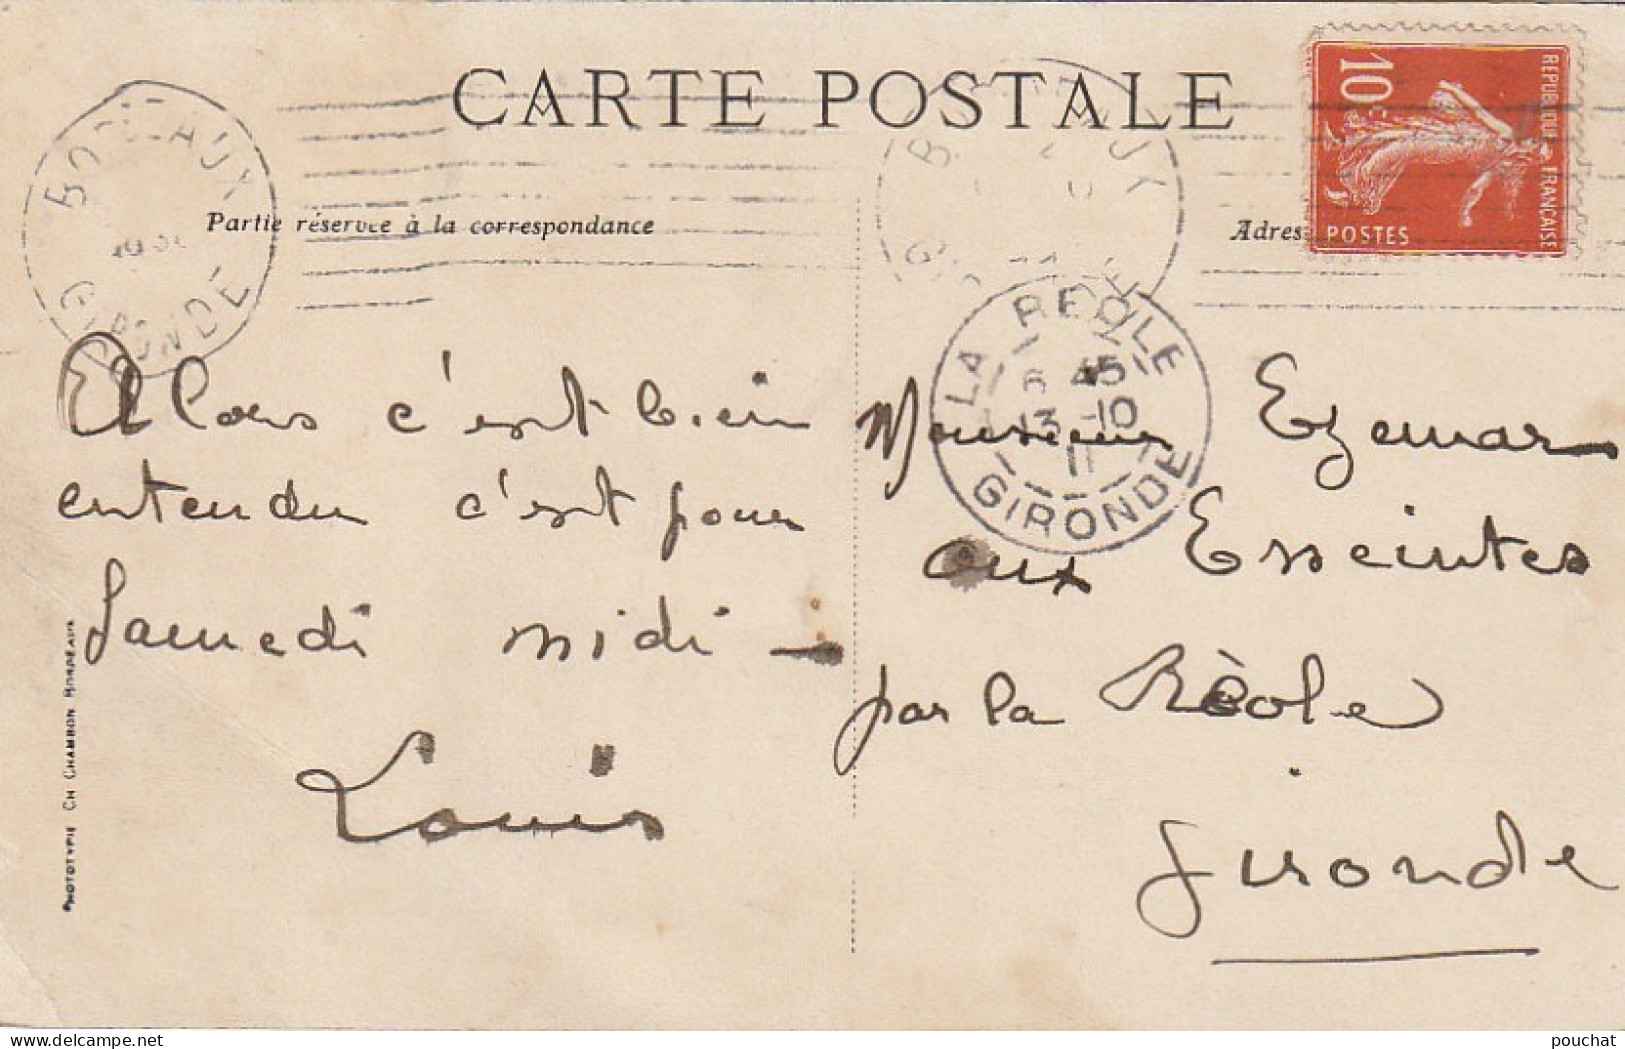 CARTE POSTALE
BORDEAUX
GIRONDE
Partie réservée à la correspondance
Adres
10c
REPUBLIQUE FRANÇAISE
POSTES
LA REOLE
6 45
13 -10
11
GIRONDE
Alors c'est bien
entendu c'est pour
Samedi midi —
Louis
Monsieur Eyemar
aux Esseintes
par la Réole
Gironde
PHOTOTYPIE CH CHAMBON BORDEAUX
pouchat